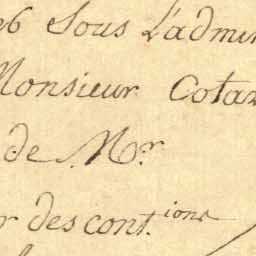 es Sous L'admin
Monsieur Cotar
de Mr.
r des cont.ions